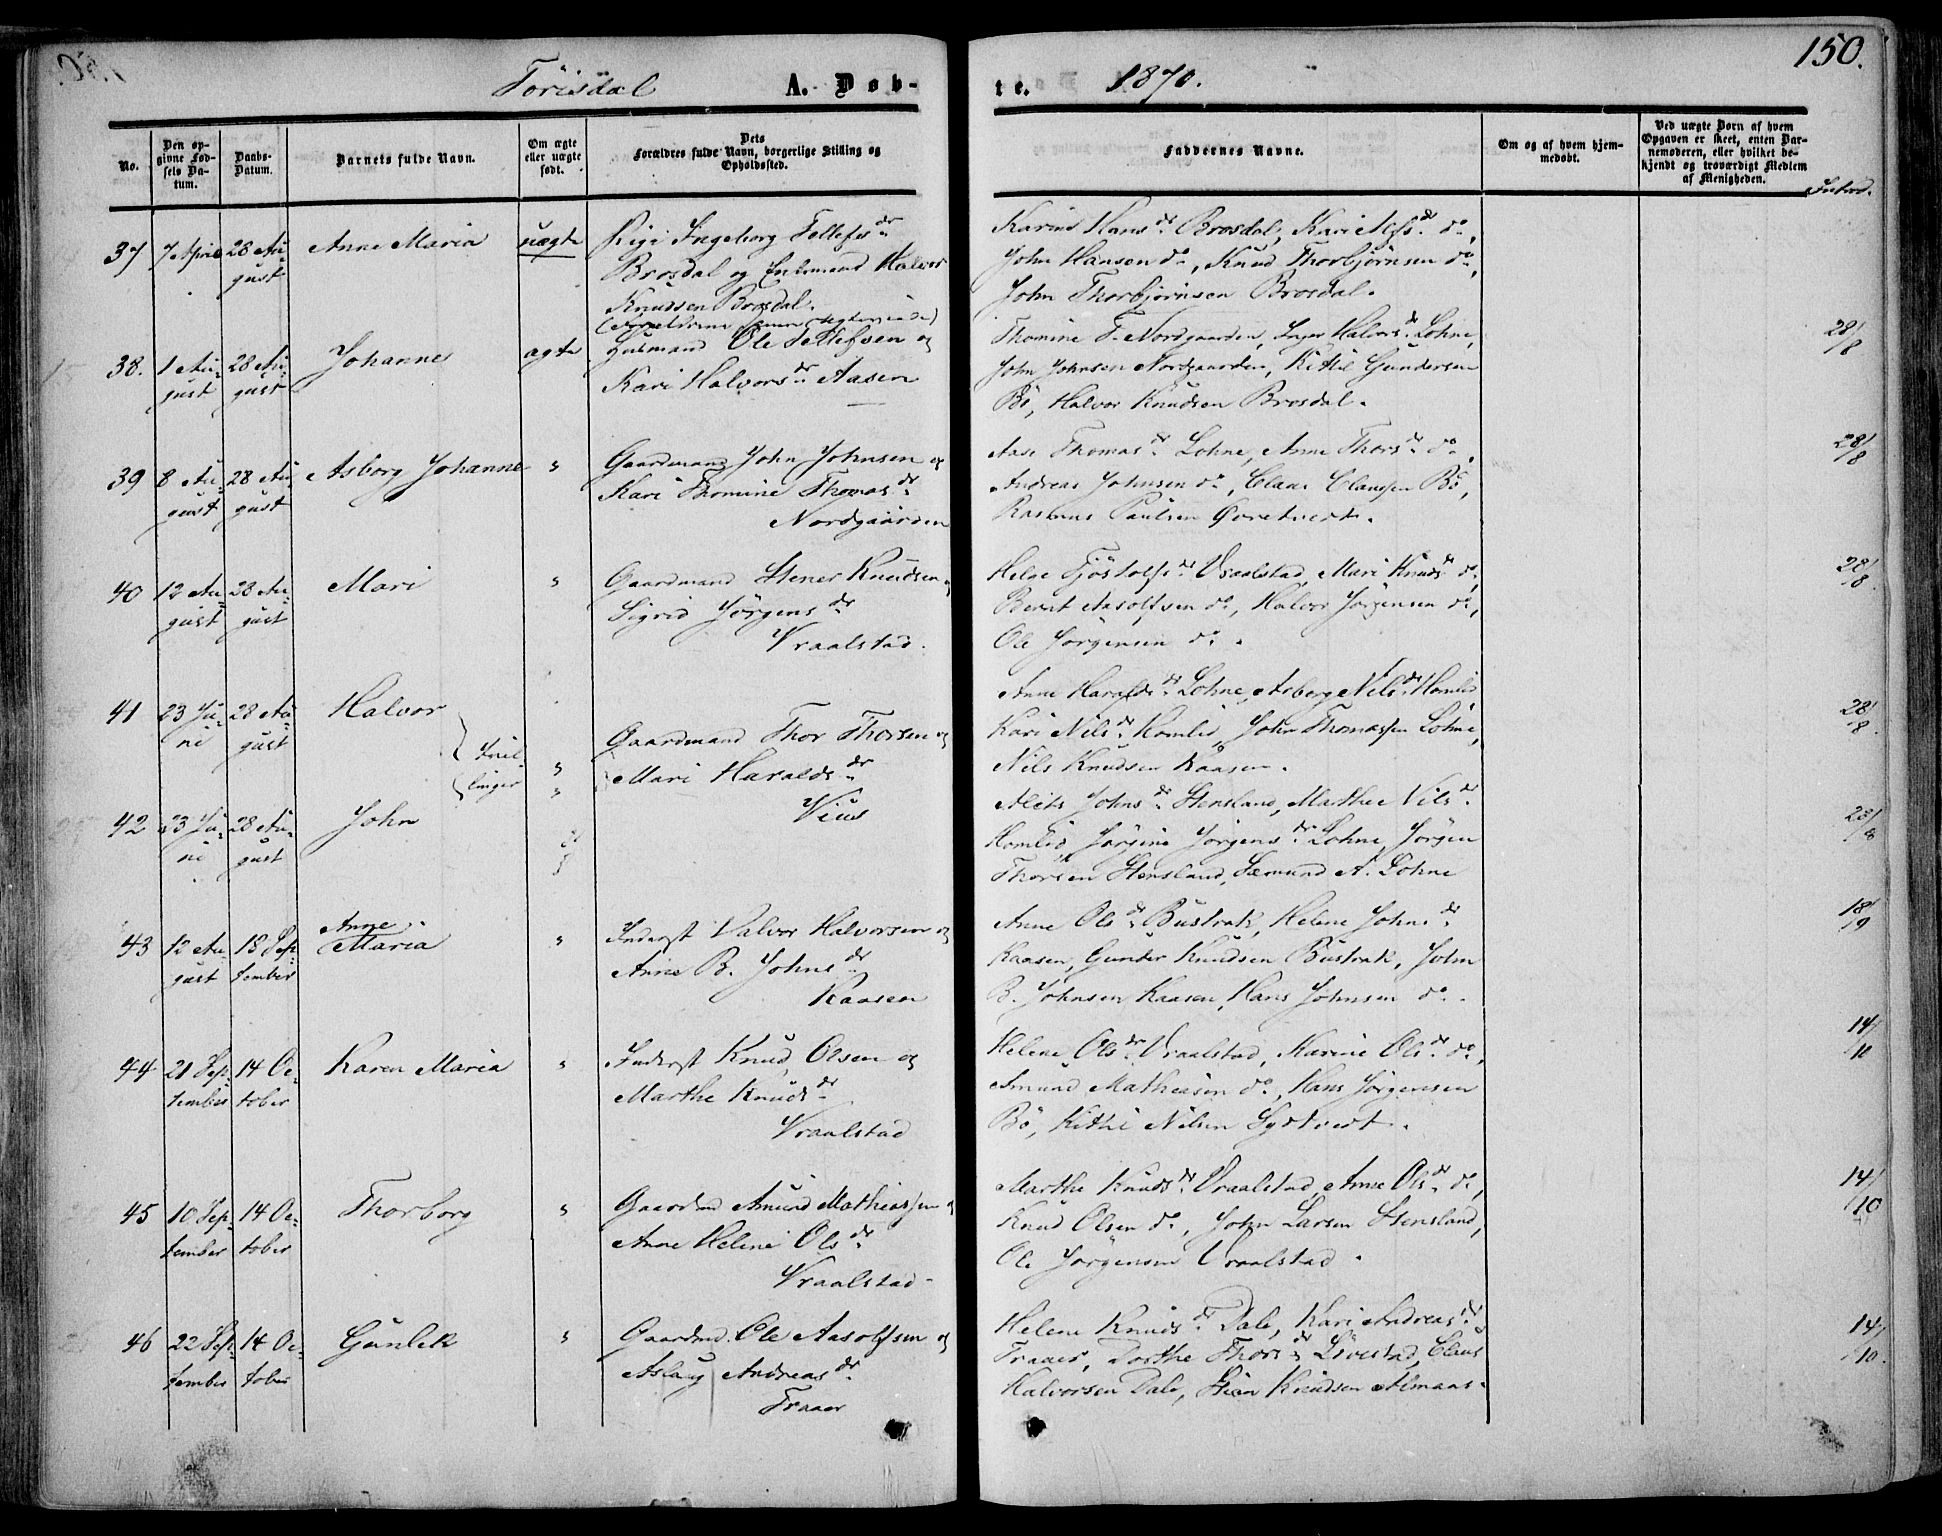 150.
Törisdal A. Døb-
te. 1870.
No.
Den op-
givne Fød-
sels Da-
tum.
Daabs-
Datum.
Barnets fulde Navn.
Om ægte
eller uægte
født.
Dets
Forældres fulde Navn, borgerlige Stilling og
Opholdssted.
Faddernes Navne.
Om og af hvem hjem-
medøbt.
Ved uægte Børn af hvem
Opgaven er skeet, enten Bar-
nemoderen, eller hvilket be-
kjendt og troværdigt Medlem
af Menigheden.
Introd.
37 7 April 28 Au-
gust
Anne Maria
uægte
Pige Ingeborg Tellefsdr
Brosdal og Enkemand Halvor
Knudsen Brosdal.
Karine Hansdr Brosdal, Kari do,
John Hansen do, Knud Thorbjørnsen do,
John Thorbjørnsen Brosdal.
38. 1 Au-
gust
28 Au-
gust
Johanne
ægte
Husmand Ole Tellefsen og
Kari Halvorsdr Aasen
Thomine T. Nordgaarden, Inger Halvorsdr Lohne,
John Johnsen Nordgaarden, Kittil Gundersen
Bö, Halvor Knudsen Brosdal.
28/8
39 8 Au-
gust
28 Au-
gust
Asborg Johanne
"
Gaardmand John Johnsen og
Kari Thomine Thomasdr
Nordgaarden
Aase Thomasdr Lohne, Anne Thorsdr do,
Andreas Johnsen do, Claus Claussen Bö,
Rasmus Paulsen Øvretvedt.
28/8
40 12 Au-
gust
28 Au-
gust
Mari
"
Gaardmand Stener Knudsen og
Sigrid Jörgensdr
Vraalstad.
Helge Tjöstolfsdr Vraalstad, Mari Knudsdr do,
Bernt Aasolfsen do, Halvor Jörgensen do,
Ole Jörgensen do.
28/8
41 23 Ju-
ni
28 Au-
gust
Halvor
Tvil-
linger
"
"
Gaardmand Thor Thorsen og
Mari Haraldsdr
Vius
Anne Haraldsdr Lohne, Asberg Nilsdr Homlid
Kari Nilsdr Homlid, John Thomassen Lohne,
Nils Knudsen Kaasen.
28/8
42 23 Ju-
ni
28 Au-
gust
John
Johnsdr Stensland, Marthe Nilsdr
Homlid Jörgine Jörgensdr Lohne, Jörgen
Thorsen Stensland, Sæmund A. Lohne
28/8
43 12 Au-
gust
18 Sep-
tember
Anne
Maria
"
Inderst Halvor Halvorsen og
Anne B. Johnsdr
Kaasen
Anne Olsdr Bustrak, Helene Johnsdr
Kaasen, Gunder Knudsen Bustrak, John
B. Johnsen Kaasen, Hans Johnsen do.
18/9
44 21 Sep-
tember
14 Oc-
tober
Karen Maria
"
Inderst Knud Olsen og
Marthe Knudsdr
Vraalstad
Helene Olsdr Vraalstad, Karine Olsdr do,
Amund Mathiasen do, Hans Jörgensen
Bö, Kittil Nilsen Sydtvedt.
14/10
45 10 Sep-
tember
14 Oc-
tober
Thorborg
"
Gaardmd Amund Mathiassen og
Anne Helene Olsdr
Vraalstad
Marthe Knudsdr Vraalstad, Anne Olsdr do,
Knud Olsen do, John Larsen Stensland,
Ole Jörgensen Vraalstad.
14/10
46 22 Sep-
tember
14 Oc-
tober
Gunlek
"
Gaardmd. Ole Aasolfsen og
Aslaug Andreasdr
Traaer
Helene Knudsdr Dale, Kari Andreasdr
Traaer, Dorthe Thorsdr Livestad, Claus
Halvorsen Dale, Knudsen Almaas.
14/10.